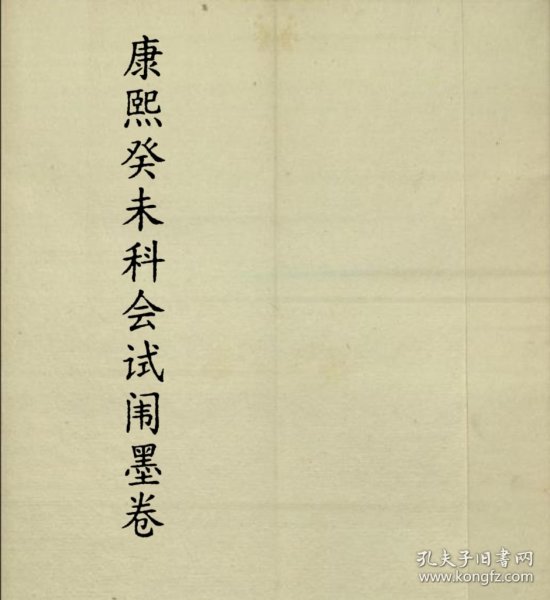 康熙癸未科会试闱墨卷
孔夫子旧书网
www.kongfz.com